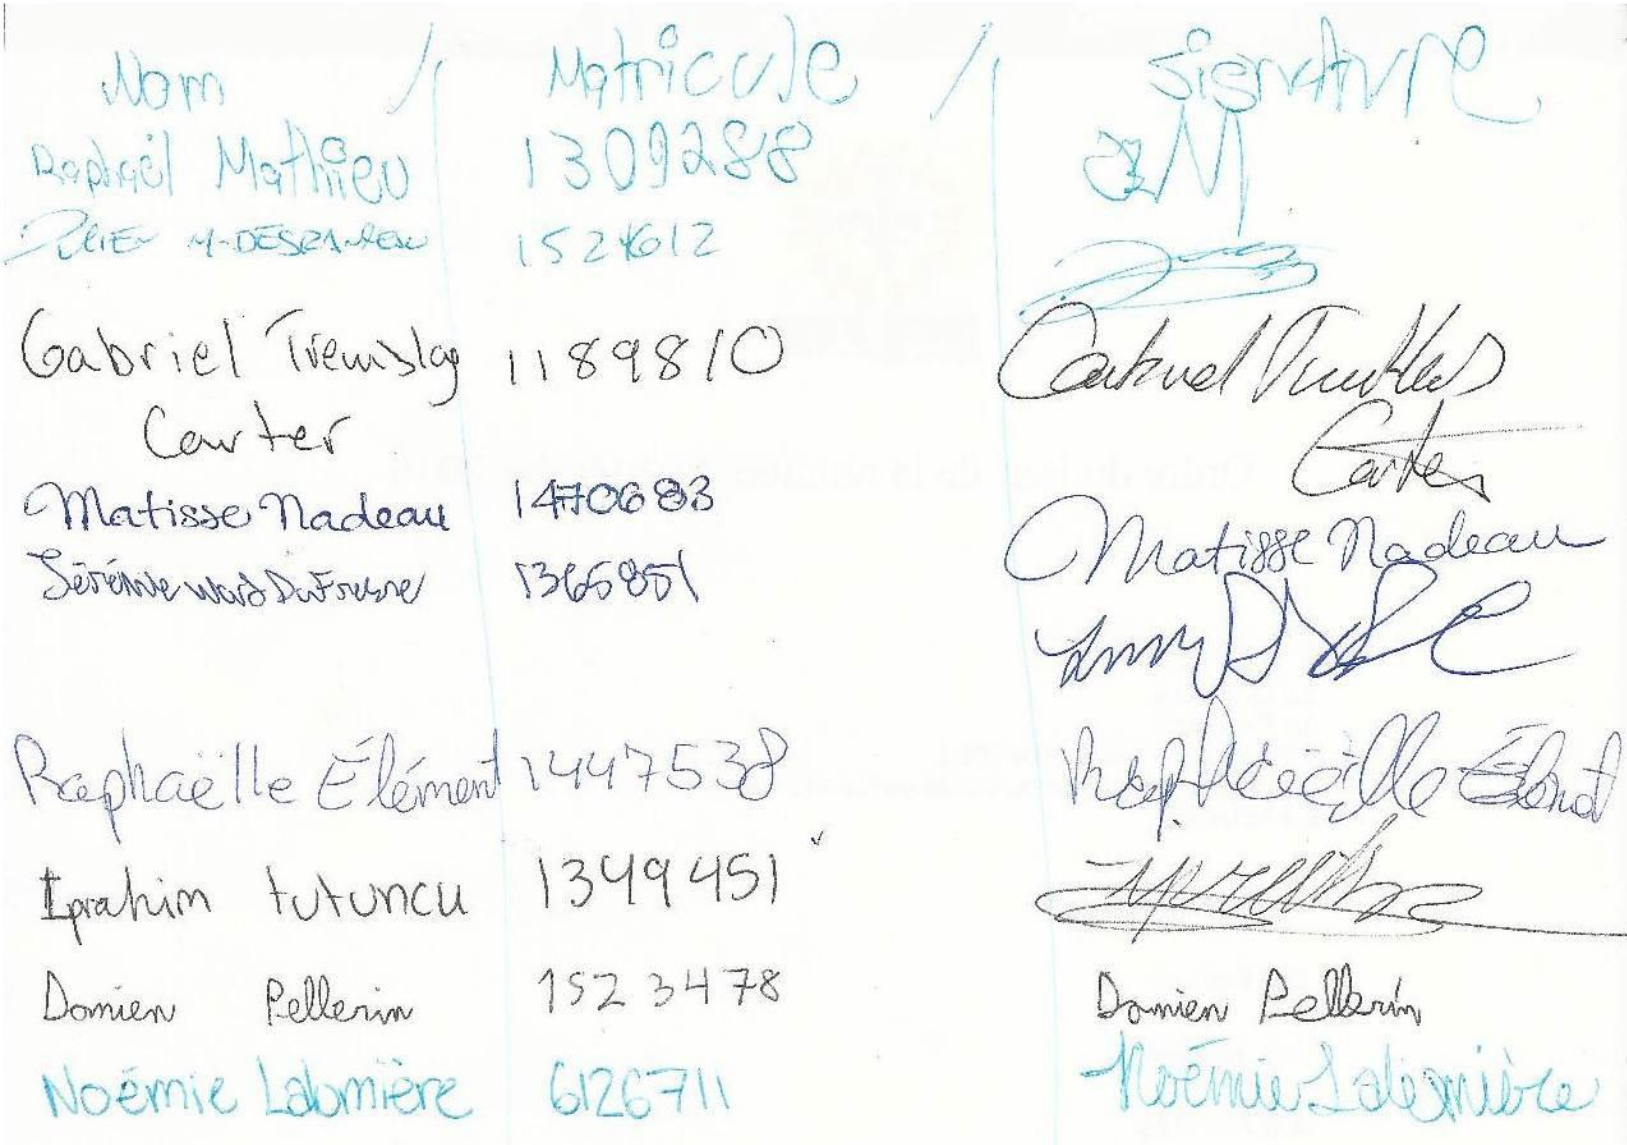 Nom / Matricule / Signature
Raphaël Mathieu 1309288
1524612
Gabriel Tremblay 1189810 Gabriel Tremblay
Carter Carter
Matisse Nadeau 1470683 Matisse Nadeau
Jérémie Ward Dufresne 1365851
Raphaëlle Élément 1447538 Raphaëlle Élément
Iprahim tutuncu 1349451
Damien Pellerin 1523478 Damien Pellerin
Noémie Labmière 6126711 Noémie